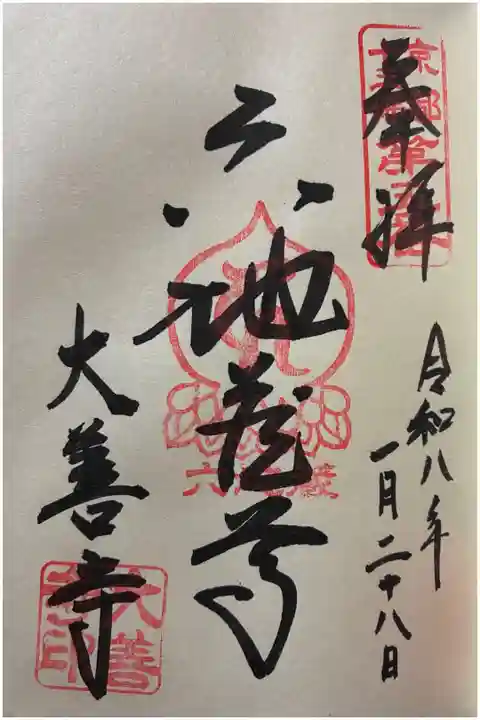 奉拝
令和八年
一月二十八日
六地蔵尊
六地蔵
大善寺
大善寺印